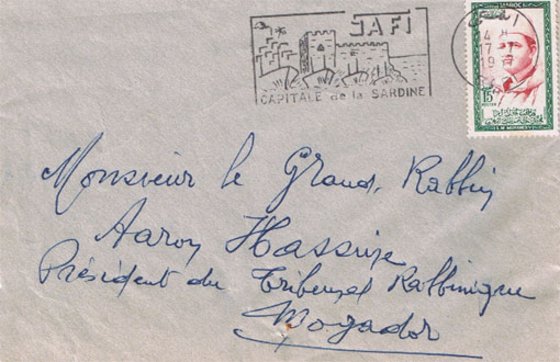 SAFI
CAPITALE de la SARDINE
MAROC
15
Monsieur le Grand Rabbin
Aaron Hassine
Président du Tribunal Rabbinique
Mogador